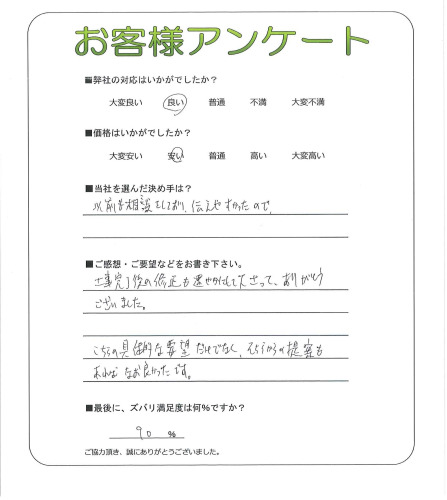 お客様アンケート
■弊社の対応はいかがでしたか?
大変良い 良い 普通 不満 大変不満
■価格はいかがでしたか?
大変安い 安い 普通 高い 大変高い
■当社を選んだ決め手は?
以前も相談をしており、伝えやすかったので。
■ご感想・ご要望などをお書き下さい。
工事完了後の修正も速やかにして下さって、ありがとう
ございました。
こちらの具体的な要望だけでなく、そちらからの提案も
あればなお良かったです。
■最後に、ズバリ満足度は何%ですか?
90 %
ご協力頂き、誠にありがとうございました。